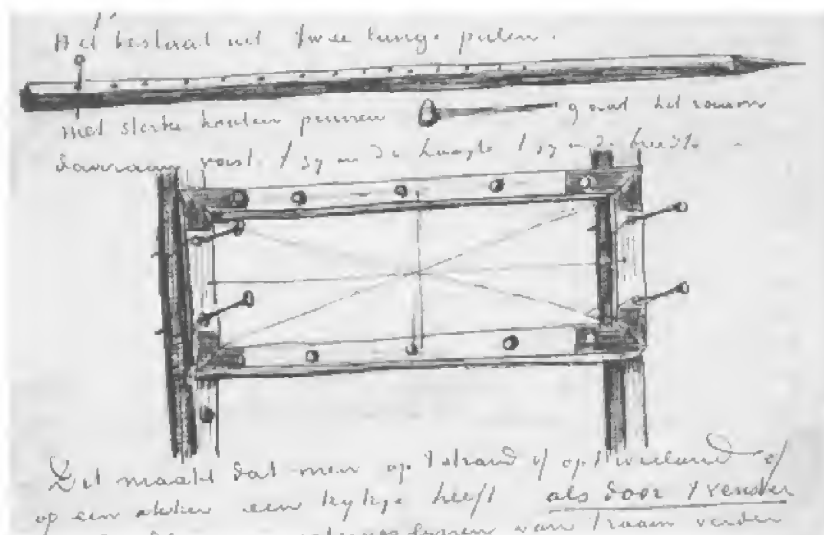 Het bestaat uit twee lange palen.
Met sterke houten pennen gaat het raam
daaraan vast. 't zy in de hoogte 't zy in de breedte
Dit maakt dat men op 't strand of op 't weiland of
op een akker een kykje heeft als door 't venster
van 't raam verder